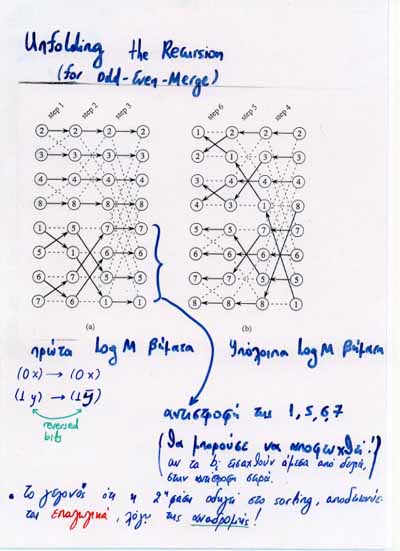 Unfolding the Recursion
(for Odd-Even-Merge)
step 1 step 2 step 3
step 6 step 5 step 4
2 2 2 2
1 2 2 2
3 3 3 3
2 1 3 3
4 4 4 4
3 4 4 4
8 8 8 8
4 3 1 8
1 5 7 7
5 1 6 6
6 7 5 5
7 6 1 1
8 8 8 1
(a)
(b)
πρώτα log M βήματα
Υπόλοιπα log M βήματα
(0x) → (0x)
(1y) → (1ȳ)
reversed
bits
αντιστροφή της 1,5,6,7
(θα μπορούσε να αποφευχθεί!
αν τα bᵢ εισαχθούν άμεσα από δεξιά,
στην αντίστροφη σειρά.
• Το γεγονός ότι η 2ⁿ φάση οδηγεί στο sorting, αποδεικνύε-
ται επαγωγικά, λόγω της αναδρομής!